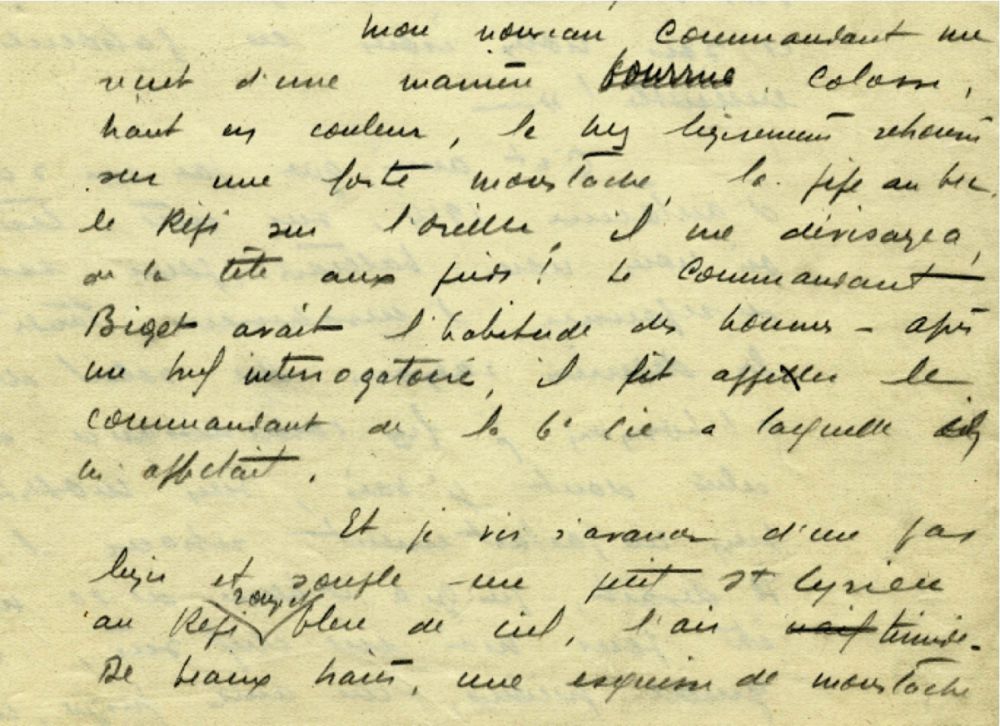 mon nouveau Commandant me
reçut d'une manière bourrue. Colosse,
haut en couleur, le nez légèrement retroussé
sur une forte moustache, la pipe au bec,
le Képi sur l'oreille, il me dévisagea,
de la tête aux pieds! Le Commandant
Biget avait l'habitude des hommes - après
un bref interrogatoire, il fit appeler le
commandant de la 6e Cie a laquelle il
m'affectait.
Et je vis s'avancer d'un pas
léger et souple - un petit St Cyrien
au Képi rouge et bleu de ciel, l'air naïf timide.
De beaux traits, une esquisse de moustache